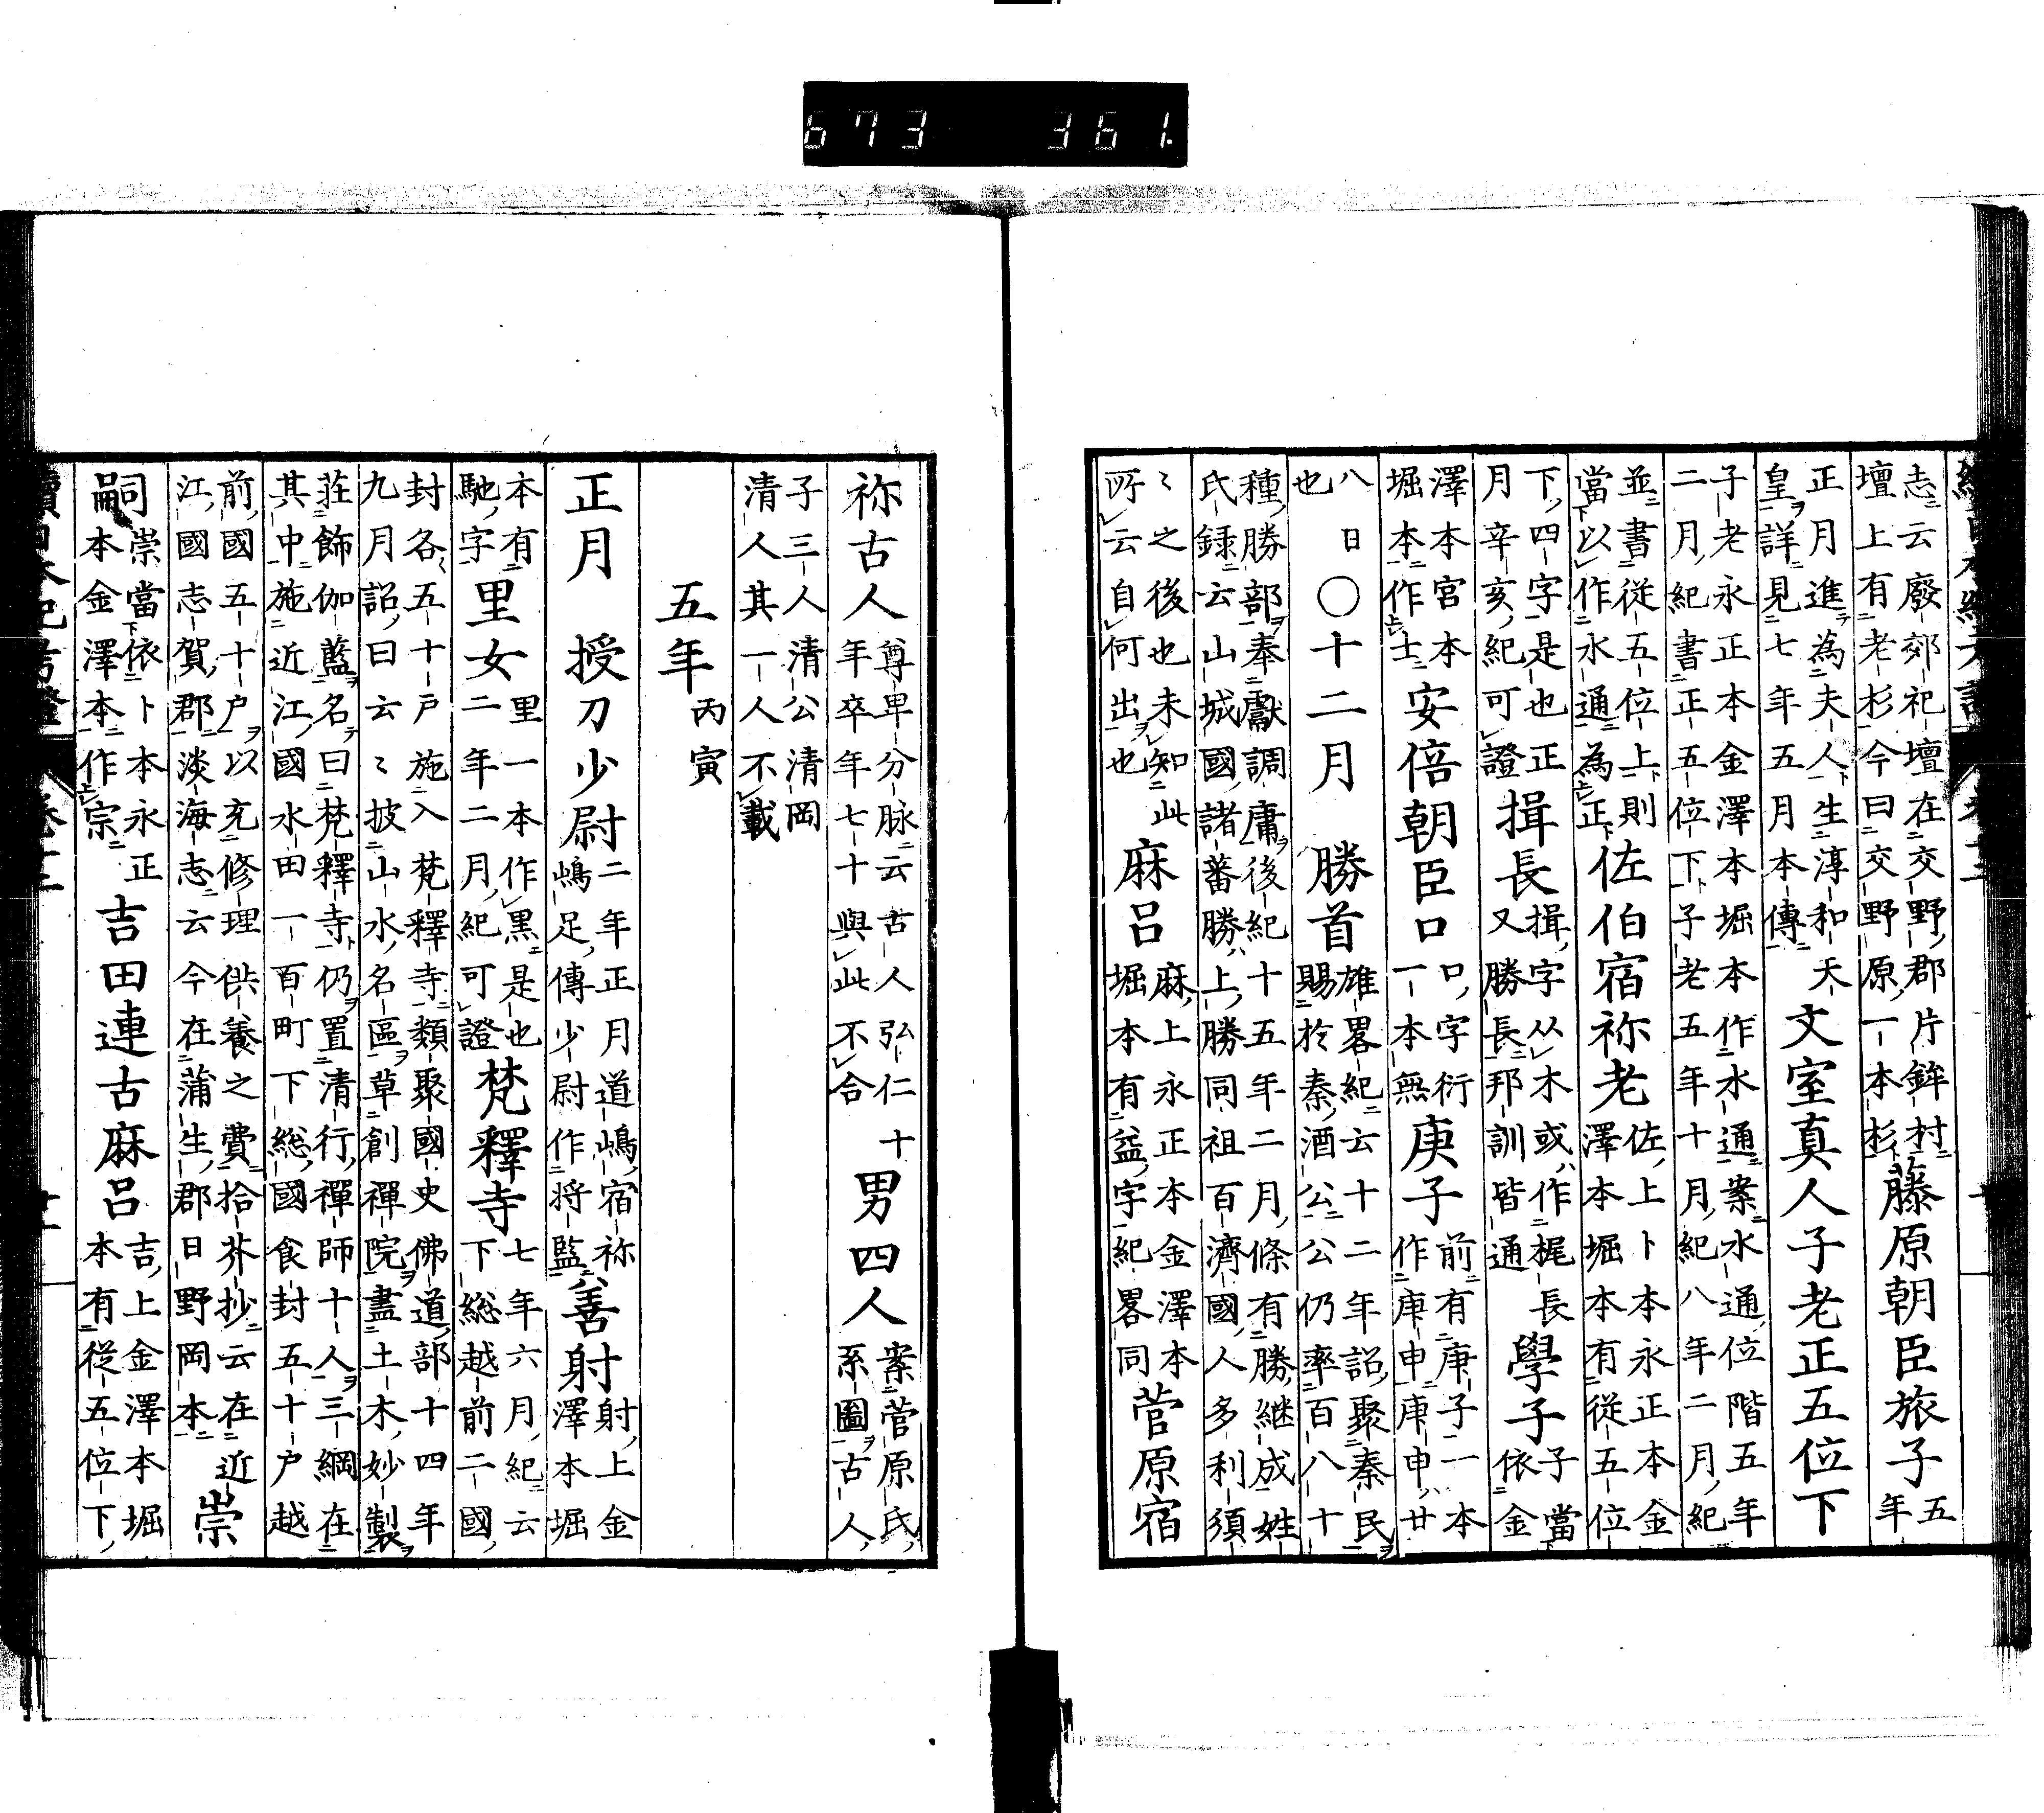 志云廢郊祀壇在交野郡片鉾村
壇上有老杉今曰交野原一本杉
藤原朝臣旅子
五
年
正月進為夫人生淳和天
皇詳見七年五月本傳
文室真人子老正五位下
子老永正本金澤本堀本作水通案水通位階五年
二月紀書正五位下子老五年十月紀八年二月紀
並書從五位上則
當以作水通為正
佐伯宿祢老
佐上卜本永正本金
澤本堀本有從五位
下四字是也正
月辛亥紀可證
揖長
揖字从木或作梶長
又勝長邦訓皆通
學子
子當
依金
澤本宮本
堀本作士
安倍朝臣口
口字衍
一本無
庚子
前有庚子一本
作庚申庚申廿
八日
也
○十二月 勝首
雄畧紀云十二年詔聚秦民
賜於秦酒公公仍率百八十
種勝部奉獻調庸後紀十五年二月條有勝継成姓
氏録云山城國諸蕃勝上勝同祖百濟國人多利須
〻之後也未知此
所云自何出也
麻呂
麻上永正本金澤本
堀本有益字紀畧同
菅原宿
祢古人
尊卑分脉云古人弘仁十
年卒年七十與此不合
男四人
案菅原氏
系圖古人
子三人清公清岡
清人其一人不載
五年 丙寅
正月 授刀少尉
二年正月道嶋宿祢
嶋足傳少尉作将監
善射
射上金
澤本堀
本有
馳字
里女
里一本作黒是也
二年二月紀可證
梵釋寺
七年六月紀云
下総越前二國
封各〻五十戸施入梵釋寺類聚國史佛道部十四年
九月詔曰云〻披山水名區草創禪院盡土木妙製
莊飾伽藍名曰梵釋寺仍置清行禪師十人三綱在
其中施近江國水田一百町下総國食封五十戸越
前國五十戸以充修理供養之費拾芥抄云在近
江國志賀郡淡海志云今在蒲生郡日野岡本
崇
嗣
崇當依卜本永正
本金澤本作宗
吉田連古麻呂
吉上金澤本堀
本有從五位下
673 361.